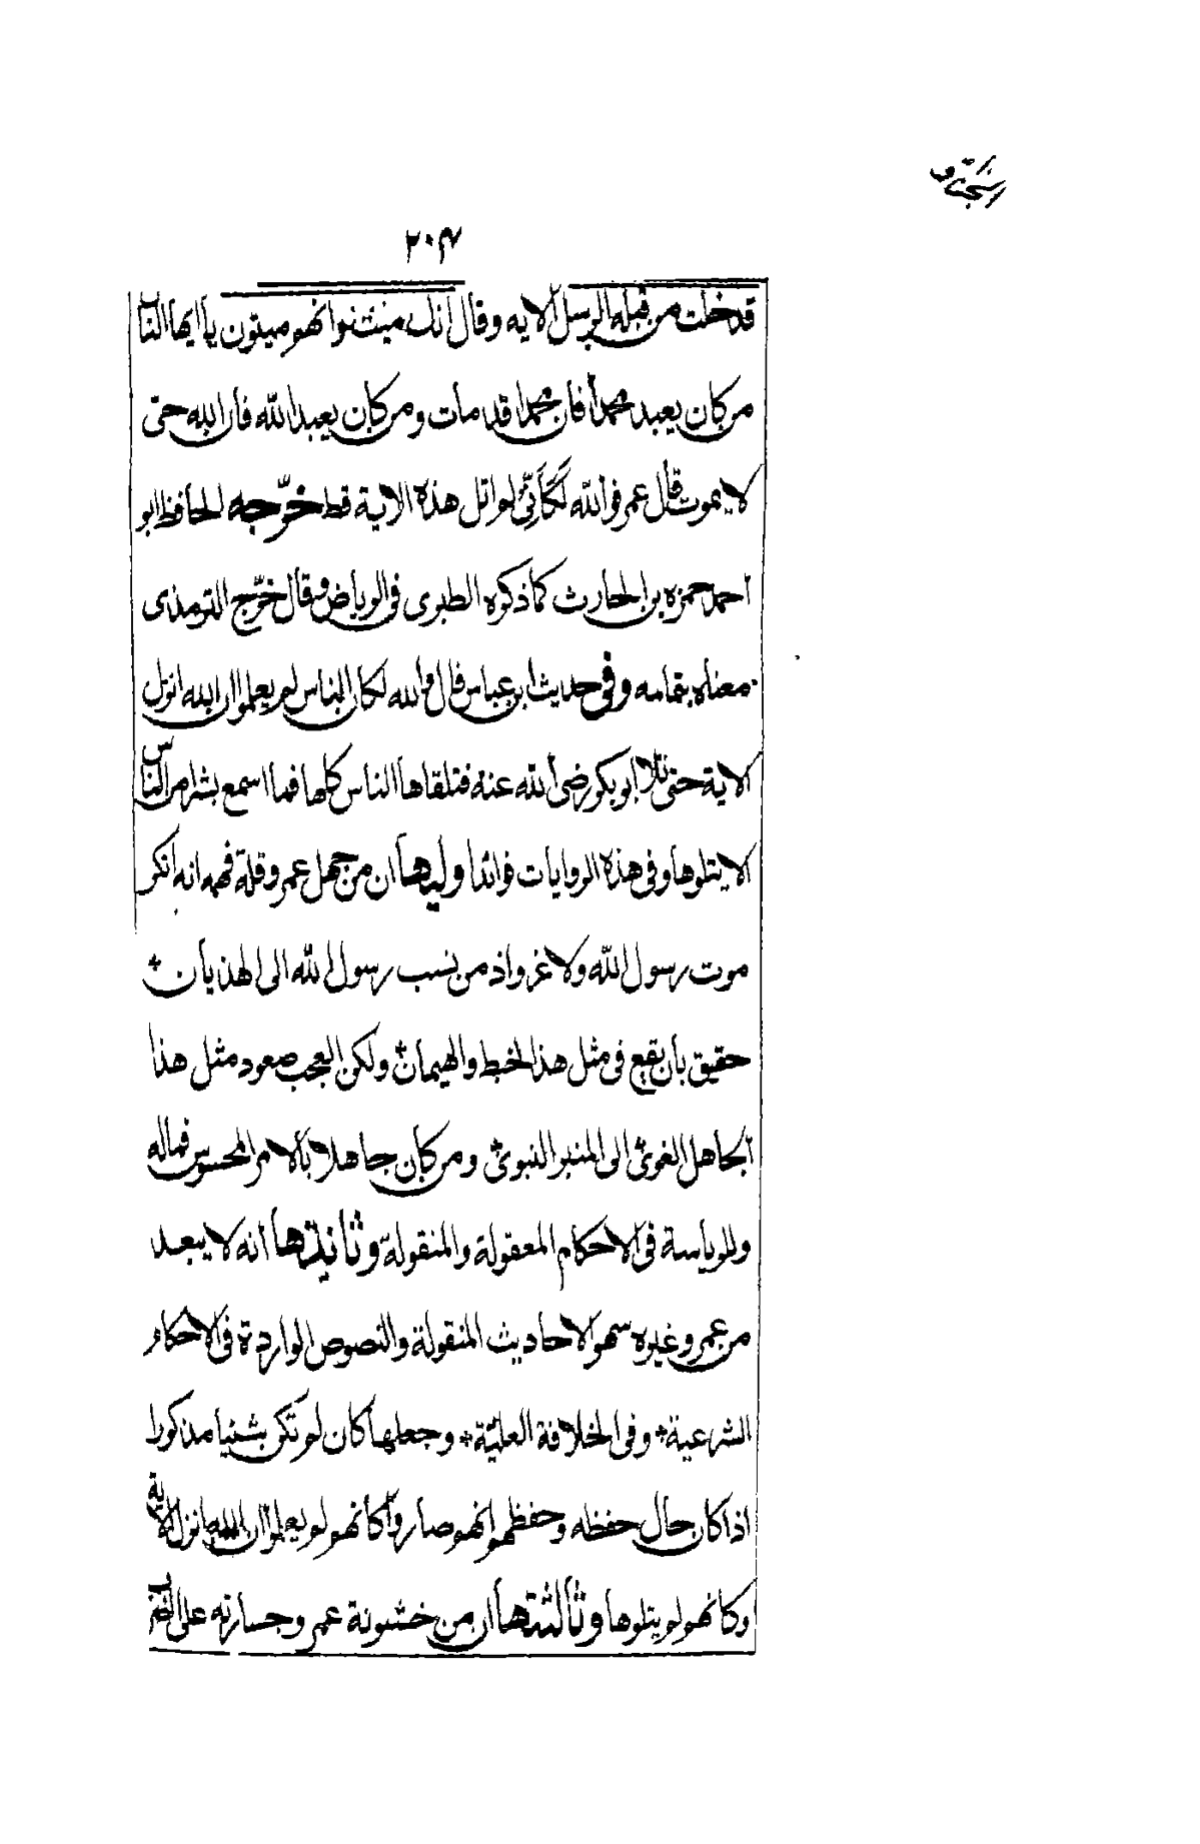 ٢٠٣
قد خلت من قبله الرسل الاية وقال انك ميت وانهم ميتون يا ايها الناس
من كان يعبد محمدا فان محمدا قد مات ومن كان يعبد الله فان الله حى
لا يموت قال عمر فوالله لَكَأَنِّى لم اتل هذه الاية قط خرّجه الحافظ ابو
احمد حمزه بن الحارث كما ذكره الطبرى فى الرياض وقال خرّج الترمذى
معناه بتمامه وفى حديث ابن عباس قال والله لكان الناس لم يعلموا ان الله انزل
الاية حتى تلا ابو بكر رضى الله عنه فتلقاها الناس كلها فما اسمع بشرا من الناس
الا يتلوها وفى هذه الروايات فوائد اوليها ان من جهل عمر وقلة فهمه انه انكر
موت رسول الله ولا غرو اذ من نسب رسول الله الى الهذيان
حقيق بان يقع فى مثل هذا الخبط والهيمان ولكن العجب صعود مثل هذا
الجاهل الغوى الى المنبر النبوى ومن كان جاهلا بالامر المحسوس فماله
وللرياسة فى الاحكام المعقولة والمنقولة وثانيتها انه لا يبعد
من عمر وغيره سهو الاحاديث المنقولة والنصوص الواردة فى الاحكام
الشرعية وفى الخلافة العليّة وجعلها كان لم تكن شيئا مذكورا
اذا كان حال حفظه وحفظهم انهم صاروا كانهم لم يعلموا ان الله انزل الاية
وكانهم لم يتلوها وثالثتها ان من خشونة عمر وجسارته على